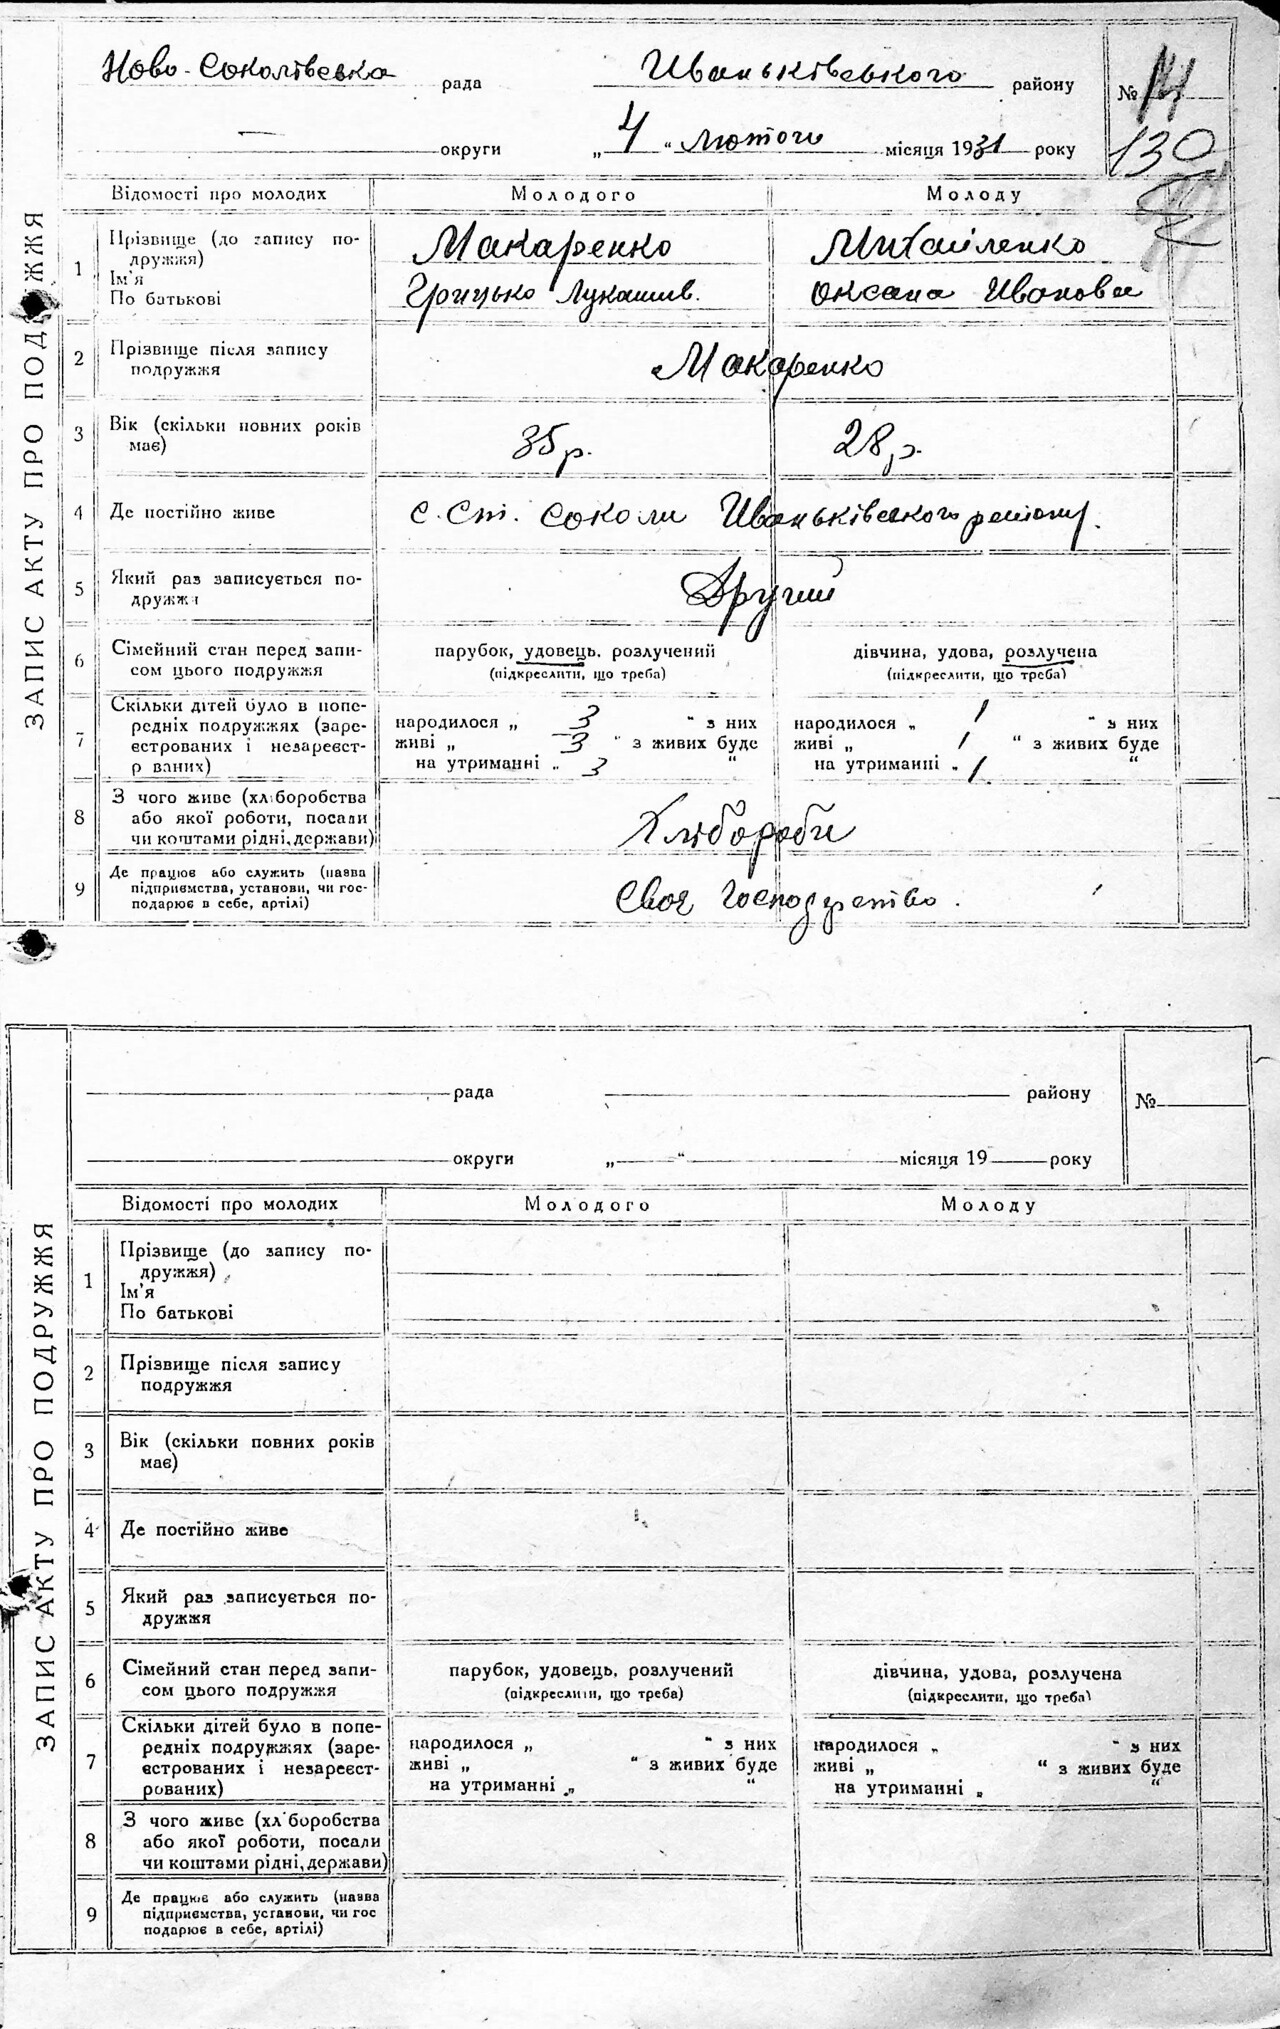 ЗАПИС АКТУ ПРО ПОДРУЖЖЯ
Ново-Соколівська рада Иваньківського району № 14
округи „ 4 “ лютого місяця 1931 року 130
Відомості про молодих Молодого Молоду
1 Прізвище (до запису подружжя) Макаренко Михайленко
Ім'я
По батькові Грицько Лукашив. Оксана Иванова
2 Прізвище після запису подружжя Макаренко
3 Вік (скільки повних років має) 35 р. 28 р.
4 Де постійно живе с. Ст. Соколи Иваньківського району.
5 Який раз записується подружжя Другий
6 Сімейний стан перед записом цього подружжя парубок, удовець, розлучений дівчина, удова, розлучена
(підкреслити, що треба) (підкреслити, що треба)
7 Скільки дітей було в попередніх подружжях (зареєстрованих і незареєстрованих) народилося „ 3 “ з них народилося „ 1 “ з них
живі „ 3 “ з живих буде живі „ 1 “ з живих буде
на утриманні „ 3 “ на утриманні „ 1 “
8 З чого живе (хліборобства або якої роботи, посади чи коштами рідні, держави) Хлібороби
9 Де працює або служить (назва підприємства, установи, чи господарює в себе, артілі) Своє господарство.
ЗАПИС АКТУ ПРО ПОДРУЖЖЯ
рада району №
округи „ “ місяця 19 року
Відомості про молодих Молодого Молоду
1 Прізвище (до запису подружжя)
Ім'я
По батькові
2 Прізвище після запису подружжя
3 Вік (скільки повних років має)
4 Де постійно живе
5 Який раз записується подружжя
6 Сімейний стан перед записом цього подружжя парубок, удовець, розлучений дівчина, удова, розлучена
(підкреслити, що треба) (підкреслити, що треба)
7 Скільки дітей було в попередніх подружжях (зареєстрованих і незареєстрованих) народилося „ “ з них народилося „ “ з них
живі „ “ з живих буде живі „ “ з живих буде
на утриманні „ “ на утриманні „ “
8 З чого живе (хліборобства або якої роботи, посади чи коштами рідні, держави)
9 Де працює або служить (назва підприємства, установи, чи господарює в себе, артілі)